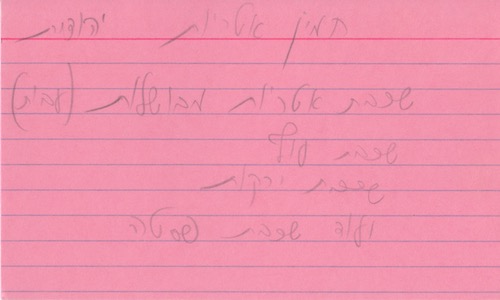 חמין אטריות יהודית
שכבת אטריות מבושלות (עבות)
שכבת עוף
שכבת ירקות
ועוד שכבת פסטה